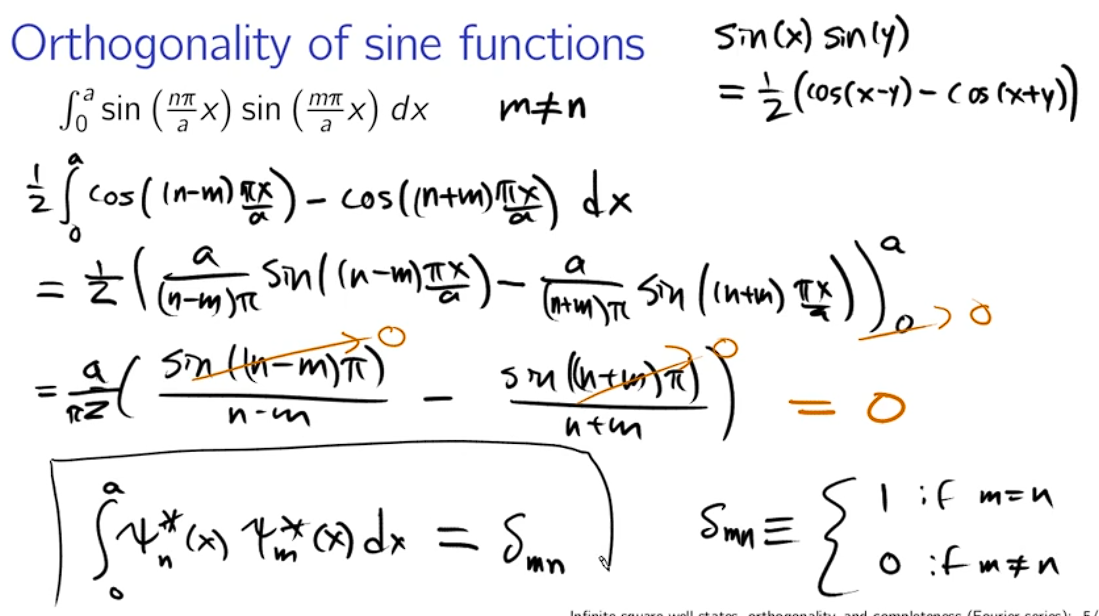 Orthogonality of sine functions
sin(x) sin(y)
= 1/2 (cos(x-y) - cos(x+y))
∫₀ᵃ sin (nπ/a x) sin (mπ/a x) dx   m≠n
1/2 ∫₀ᵃ cos((n-m) πx/a) - cos((n+m) πx/a) dx
= 1/2 ( a/((n-m)π) sin((n-m) πx/a) - a/((n+m)π) sin((n+m) πx/a) )₀ᵃ → 0
= a/(π2) ( sin((n-m)π)/(n-m) → 0 - sin((n+m)π)/(n+m) → 0 ) = 0
∫₀ᵃ ψₙ*(x) ψₘ*(x) dx = δₘₙ
δₘₙ ≡ { 1 if m=n
0 if m≠n
Infinite square well states, orthogonality, and completeness (Fourier series): 5/